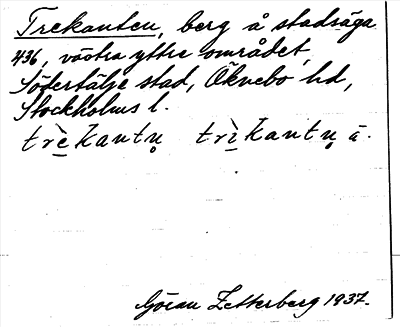 Trekanten, berg å stadsäga
436, västra yttre området,
Södertälje stad, Öknebo hd,
Stockholms l.
trè̱kantṇ trì̱kantṇ ä.
Göran Zetterberg 1937.